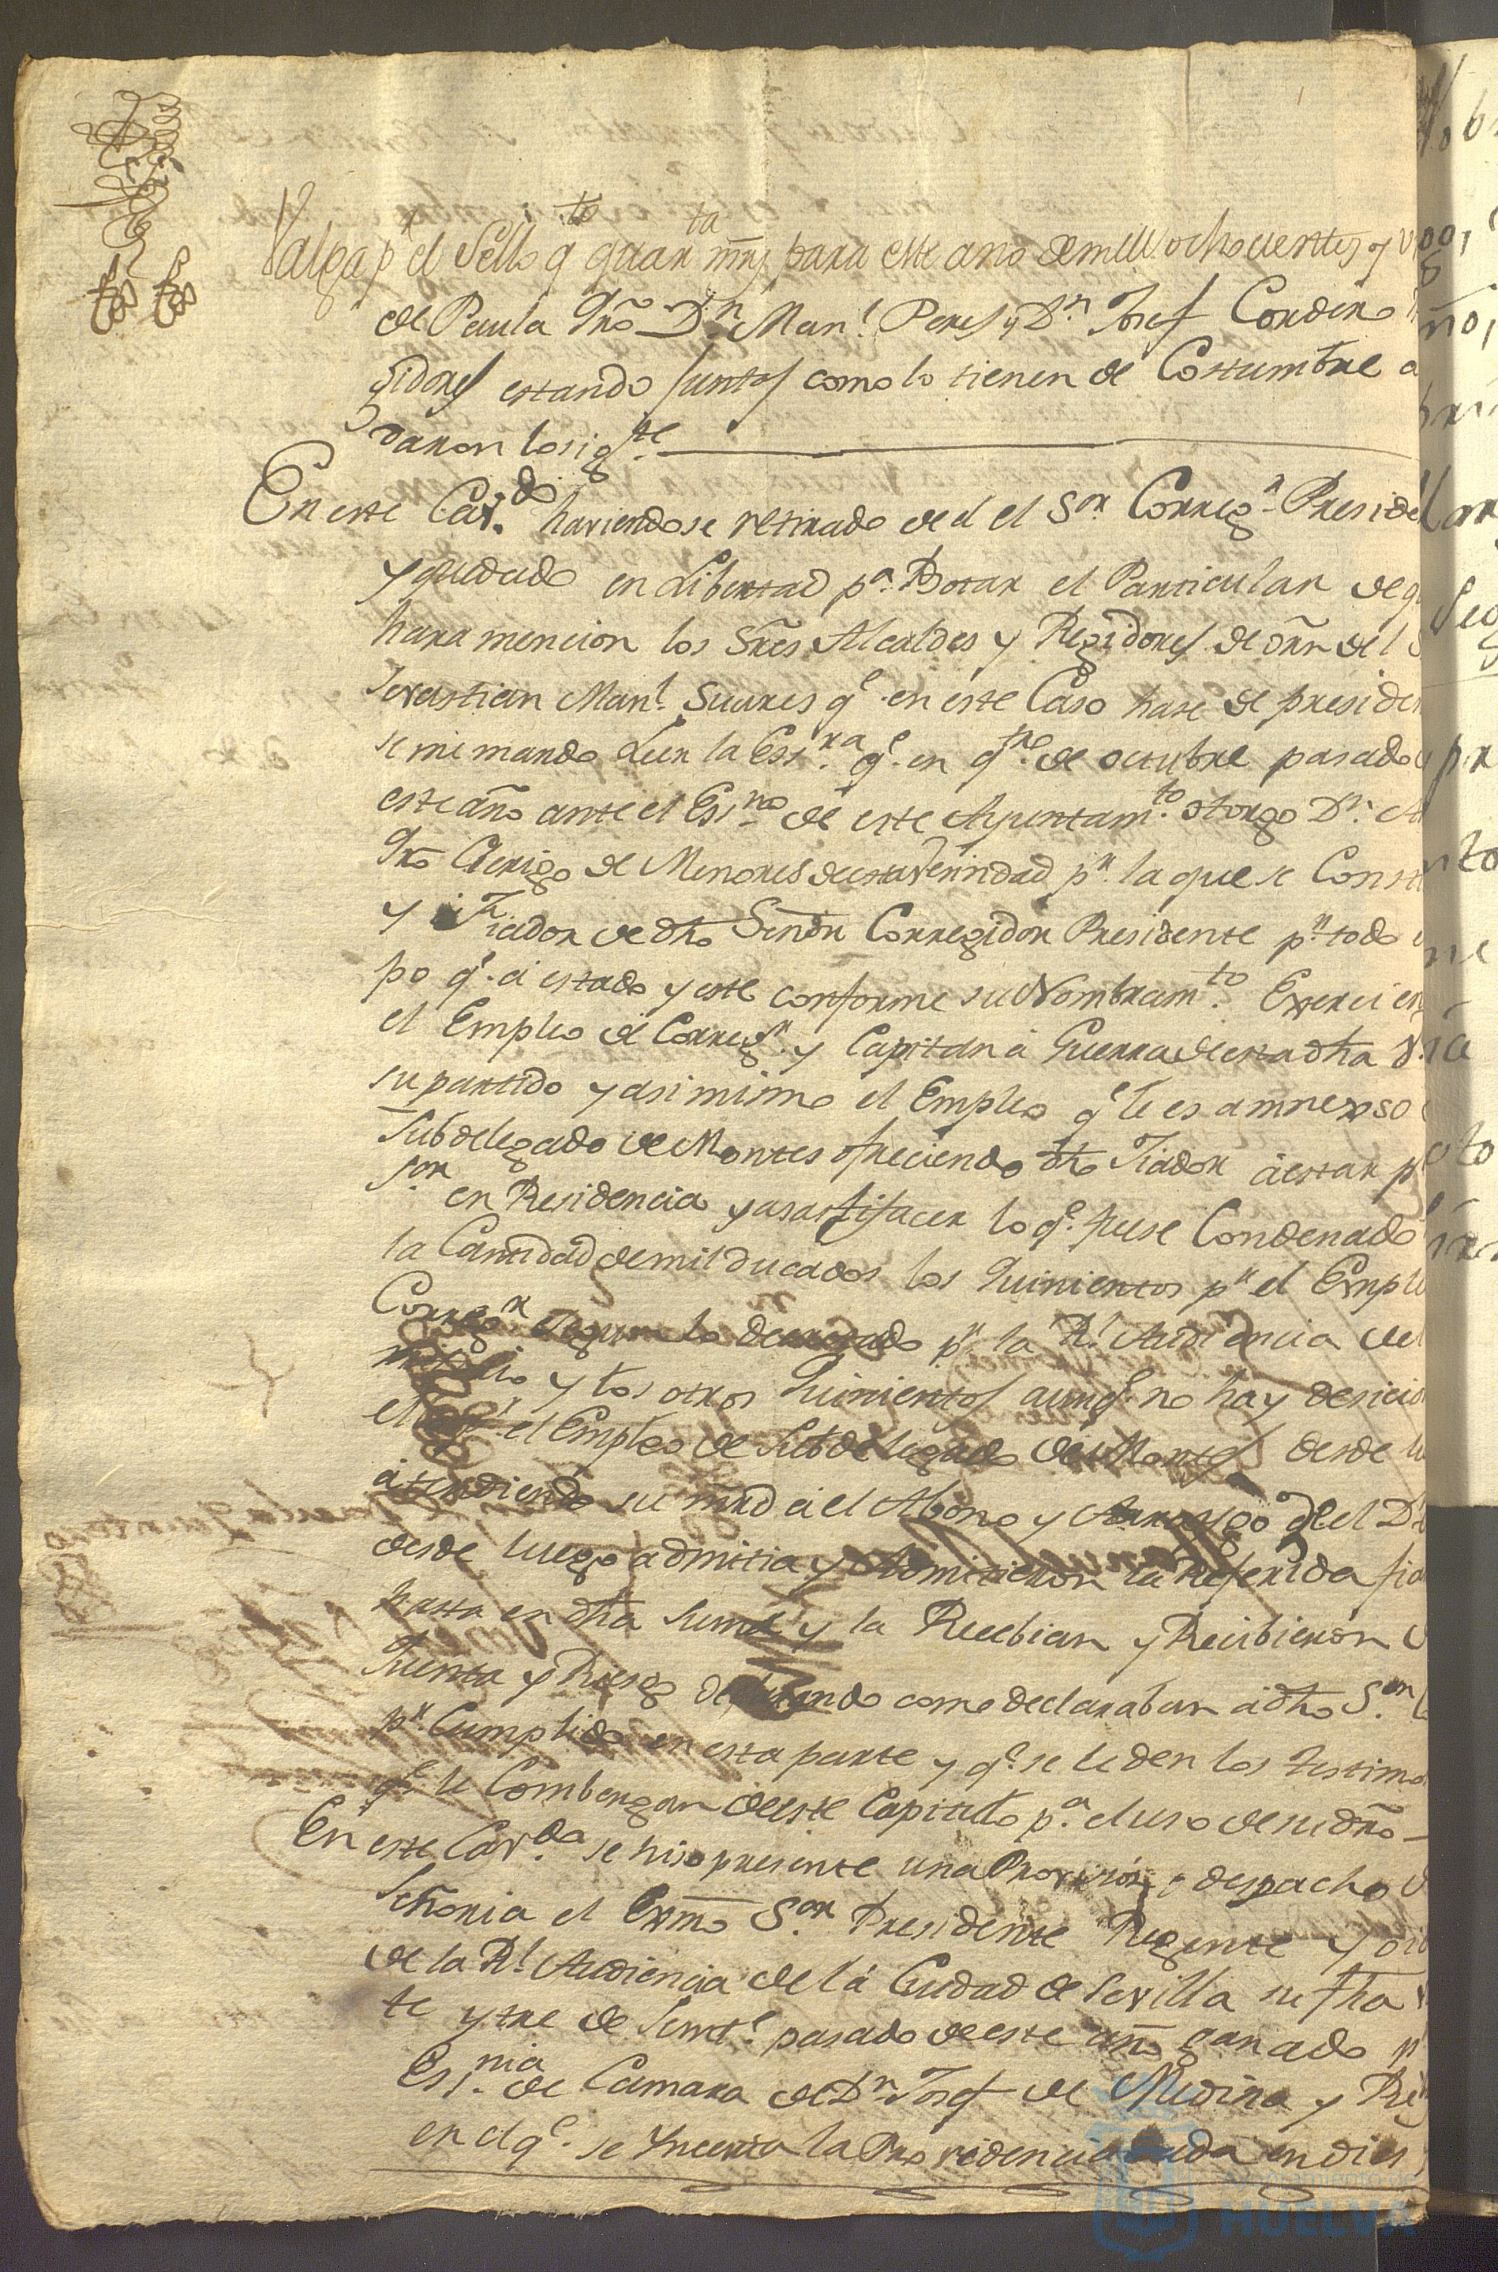 Valga pr el Sello qto quarta mrs para este año de mill ochocientos y u
de Paula Gro Dn Manl Peres y Dn Josef Cordero
gidores estando juntos como lo tienen de Costumbre a
daron lo sigte
En este Cavdo haviendose retirado de el el Sor Corregr Preside
y quedado en Libertad pa Botar el Particular de q
hara mencion los Sres Alcaldes y Regidores de orn del S
Sevastian Manl Suares qe en este Caso hase de presiden
se me mando Leer la Essra qe en qtro de octubre pasado
este año ante el Essno de este Ayuntamto otorgo Dn
Gro Clerigo de Menores de esta Vecindad pr la que se Consti
y Fiador de dho Señor Corregidor Presidente pr todo
po qe á estado y esté conforme su Nombramto Exercien
el Empleo de Corregr y Capitan á Guerra de esta dha V
su partido y asimismo el Empleo qe le es amnexso
Subdelegado de Montes ofreciendo dho Fiador á estar p
Sor en Residencia y a sastifacer lo qe fuese Condenado
la Cantidad de mil ducados los Quinientos pr el Emple
Corregr segun lo decretado pr la Rl Audiencia de
y los otros Quinientos aunqe no hay desicio
el Empleo de Subdelegado de Montes desde lu
atendiendo su mrd á el Abono y Arraygo de el D
desde luego admitia y Admitieron la Referida fia
hasta en dha Suma y la Recebian y Recibieron
Quenta y Riesgo declarando como declaraban á dho Sor
pr Cumplido en esta parte y qe se le den los testimo
qe le Combengan de este Capitulo pa el uso de su dro
En este Cavdo se hiso presente una Provision o despacho
Señoria el Exmo Sor Presidente Regente y oi
de la Rl Audiencia de la Ciudad de Sevilla su fha
te y tre de Semte pasado de este año ganado p
Essnia de Camara de Dn Josef de Medina y
en el qe se Yncerta la Providencia dada en dies
Ayuntamiento de
HUELVA